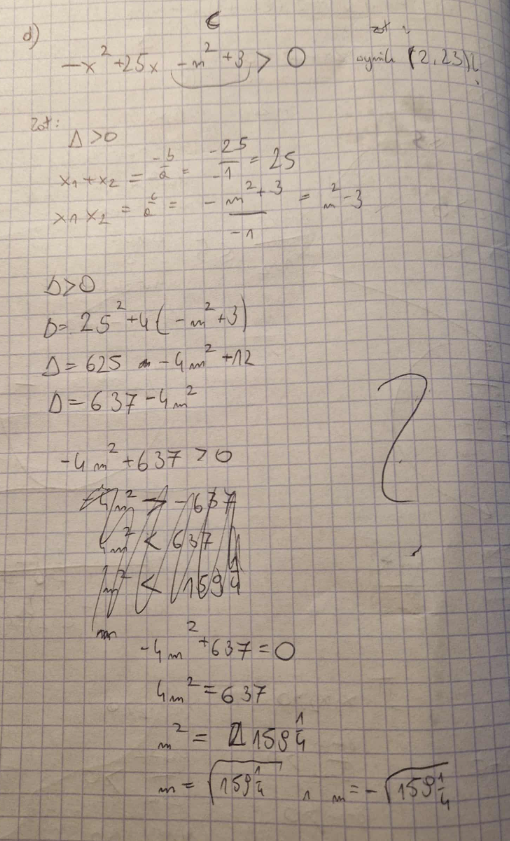 c
d) -x² + 25x - m² + 3 > 0
zat:
wynik (2,23)
zat:
Δ > 0
x₁ + x₂ = -b/a = -25/-1 = 25
x₁ x₂ = c/a = -m² + 3/-1 = m² - 3
Δ > 0
Δ = 25² + 4(-m² + 3)
Δ = 625 - 4m² + 12
Δ = 637 - 4m²
-4m² + 637 > 0
-4m² > -637
4m² < 637
m² < 159 1/4
-4m² + 637 = 0
4m² = 637
m² = 159 1/4
m = √159 1/4 ∧ m = -√159 1/4
?